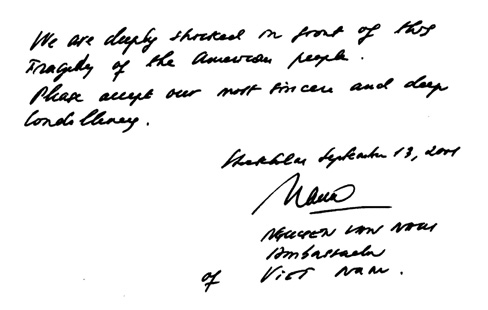 We are deeply shocked in front of this
tragedy of the American people.
Please accept our most sincere and deep
Condollency.
Stockholm September 13, 2001
NGUYEN VAN
Ambassador
of VIET Nam.